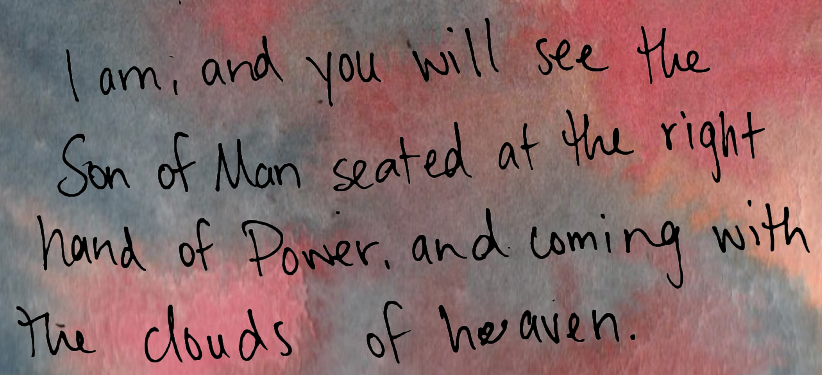 I am, and you will see the
Son of Man seated at the right
hand of Power, and coming with
the clouds of heaven.